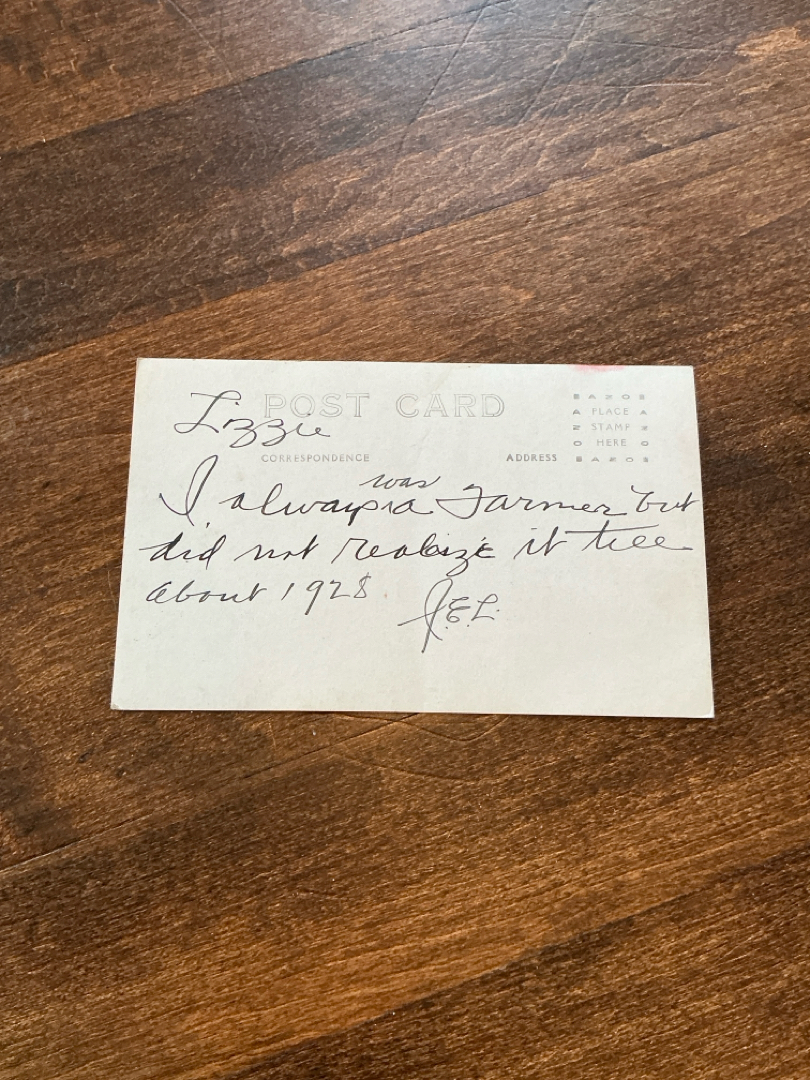 POST CARD
Lizzie
CORRESPONDENCE
ADDRESS
PLACE
STAMP
HERE
AZO
was
I always a Farmer but
did not realize it till
about 1928.
J.E.L.